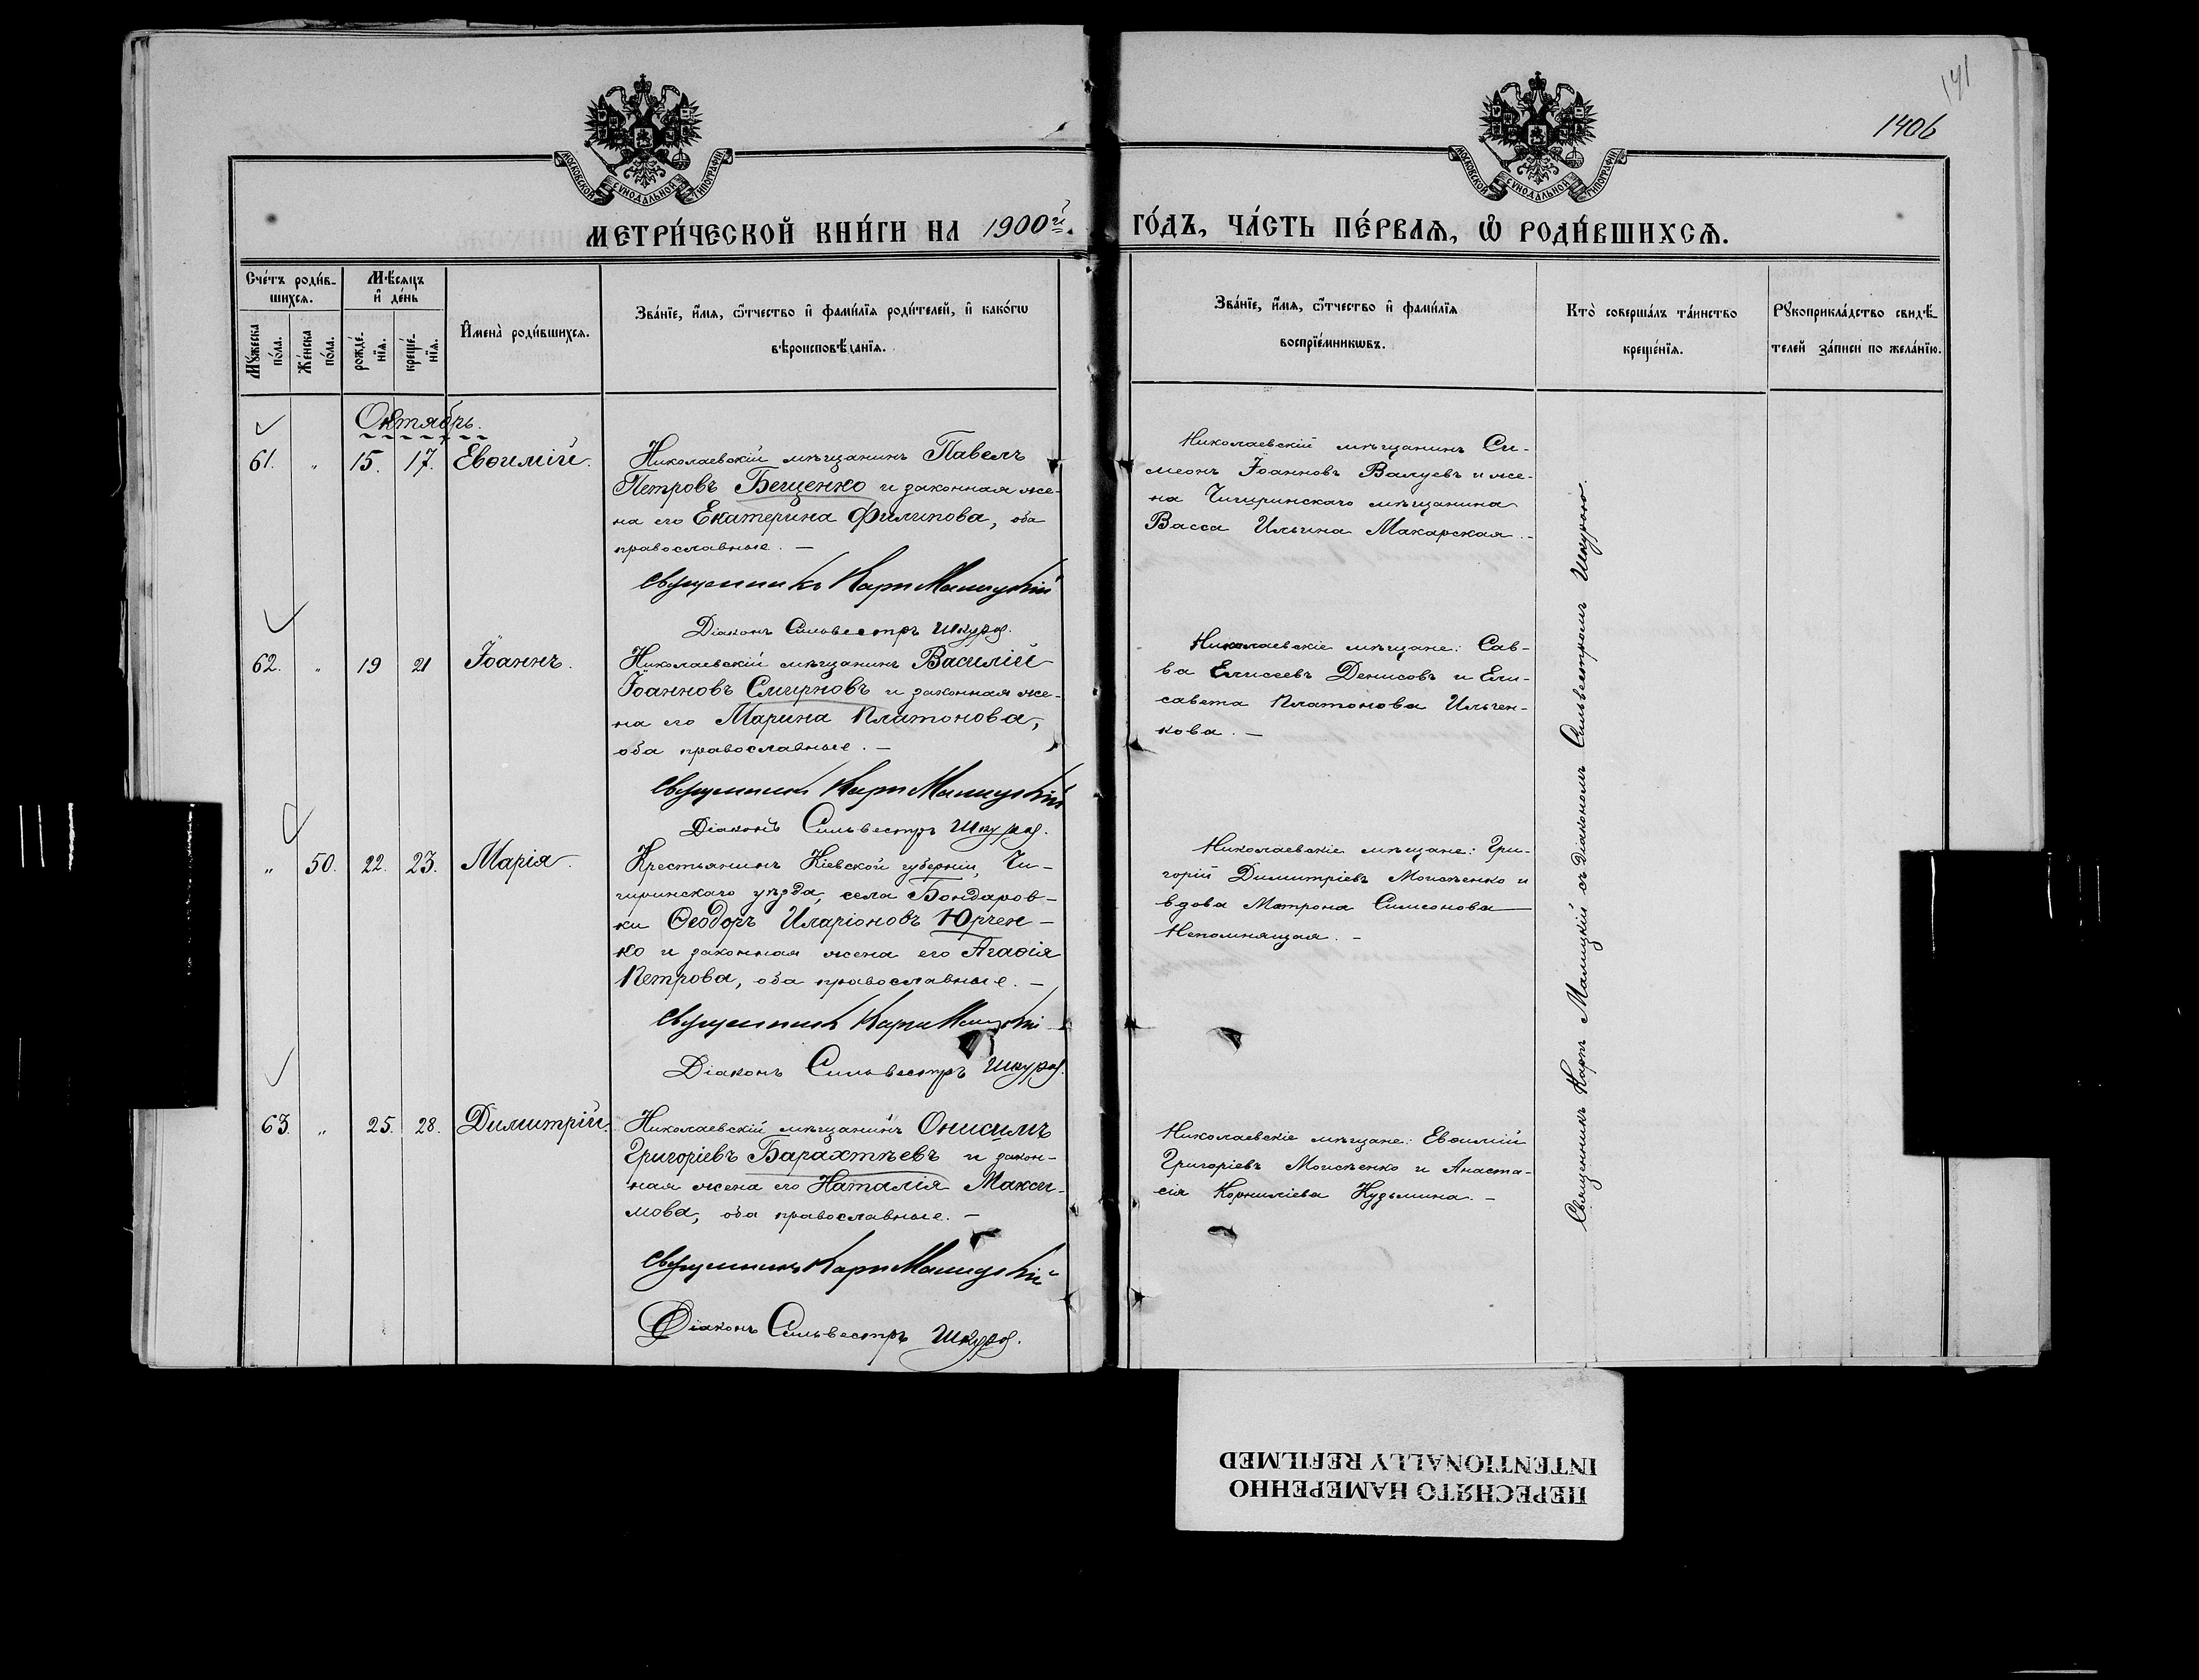 141
1406
МОСКОВСКОЙ СѴНОДАЛЬНОЙ ТИПОГРАФІИ
МОСКОВСКОЙ СѴНОДАЛЬНОЙ ТИПОГРАФІИ
МЕТРИ́ЧЕСКОЙ КНИ́ГИ НА 1900й.
ГО́ДЪ, ЧА́СТЬ ПЕ́РВАѦ, Ѡ҆ РОДИ́ВШИХСѦ.
Сче́тъ роди́в-
шихсѧ.
Мꙋ́жеска
по́ла.
Же́нска
по́ла.
Мѣ́сѧцъ
и҆ де́нь
рожде́-
нїѧ.
креще́-
нїѧ.
И҆мена̀ роди́вшихсѧ.
Зва́нїе, и҆́мѧ, ѻ҆́тчество и҆ фами́лїѧ роди́телей, и҆ како́гѡ
вѣроисповѣ́данїѧ.
Зва́нїе, и҆́мѧ, ѻ҆́тчество и҆ фами́лїѧ
воспрїе́мникѡвъ.
Кто̀ соверша́лъ та́инство
креще́нїѧ.
Рꙋкоприкла́дство свидѣ́-
телей за́писи по жела́нїю.
Октябрь.
61. „ 15. 17. Евѳимій.
Николаевскій мѣщанинъ Павелъ
Петровъ Бещенко и законная же-
на его Екатерина Филипова, оба
православные. —
Священникъ Карпъ Малицкій
Діаконъ Сильвестръ Шкура.
Николаевскій мѣщанинъ Си-
меонъ Іоанновъ Валуевъ и же-
на Чигиринскаго мѣщанина
Васса Ильина Макарская. -
62. „ 19 21 Іоаннъ.
Николаевскій мѣщанинъ Василій
Іоанновъ Смирновъ и законная же-
на его Марина Платонова,
оба православные. —
Священникъ Карпъ Малицкій
Діаконъ Сильвестръ Шкура.
Николаевскіе мѣщане: Сав-
ва Елисеевъ Денисовъ и Ели-
савета Платонова Ильчен-
кова. —
„ 50. 22. 23. Марія.
Крестьянинъ Кіевской губерніи, Чи-
гиринскаго уѣзда, села Бондаров-
ки Ѳеодоръ Иларіоновъ Юрчен-
ко и законная жена его Агаѳія
Петрова, оба православные. —
Священникъ Карпъ Малицкій
Діаконъ Сильвестръ Шкура.
Николаевскіе мѣщане: Гри-
горій Димитріевъ Моисѣенко и
вдова Матрона Симеонова
Непомнящая. -
63. „ 25. 28. Димитрій.
Николаевскій мѣщанинъ Онисимъ
Григоріевъ Барахтѣевъ и закон-
ная жена его Наталія Макси-
мова, оба православные. —
Священникъ Карпъ Малицкій
Діаконъ Сильвестръ Шкура.
Николаевскіе мѣщане: Евѳимій
Григоріевъ Моисѣенко и Анаста-
сія Корниліева Кудьмина. -
Священникъ Карпъ Малицкій съ діакономъ Сильвестромъ Шкурою.
ПЕРЕСНЯТО НАМЕРЕННО
INTENTIONALLY REFILMED